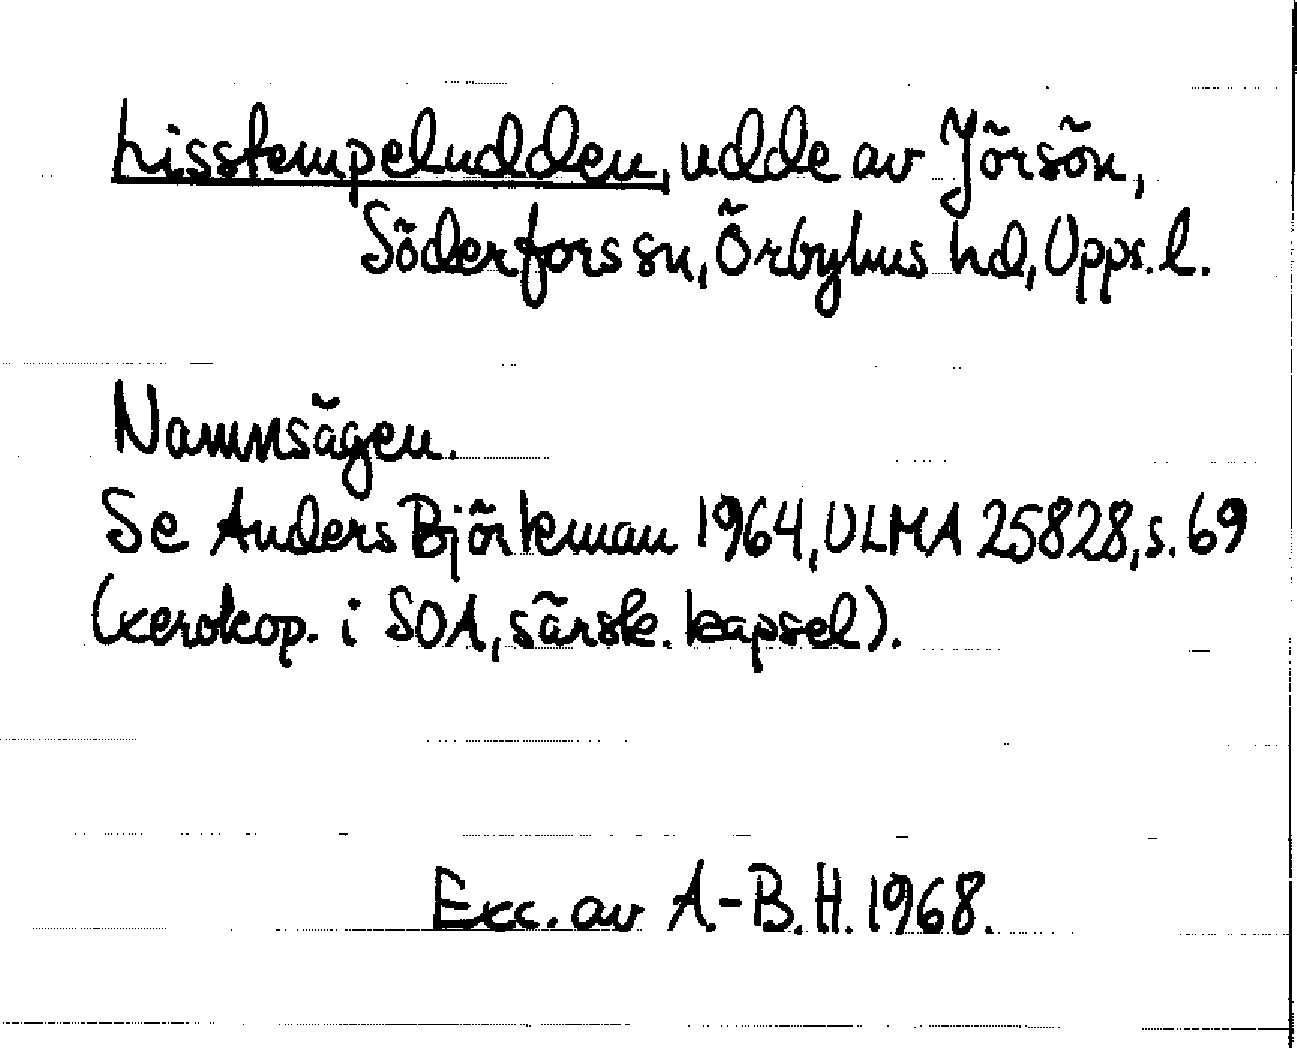 Lisstempeludden, udde av Jörsön,
Söderfors sn, Örbyhus hd, Upps. l.
Namnsägen.
Se Anders Björkman 1964, ULMA 25828, s. 69
(xerokop. i SOA, särsk. kapsel).
Exc. av A.-B. H. 1968.